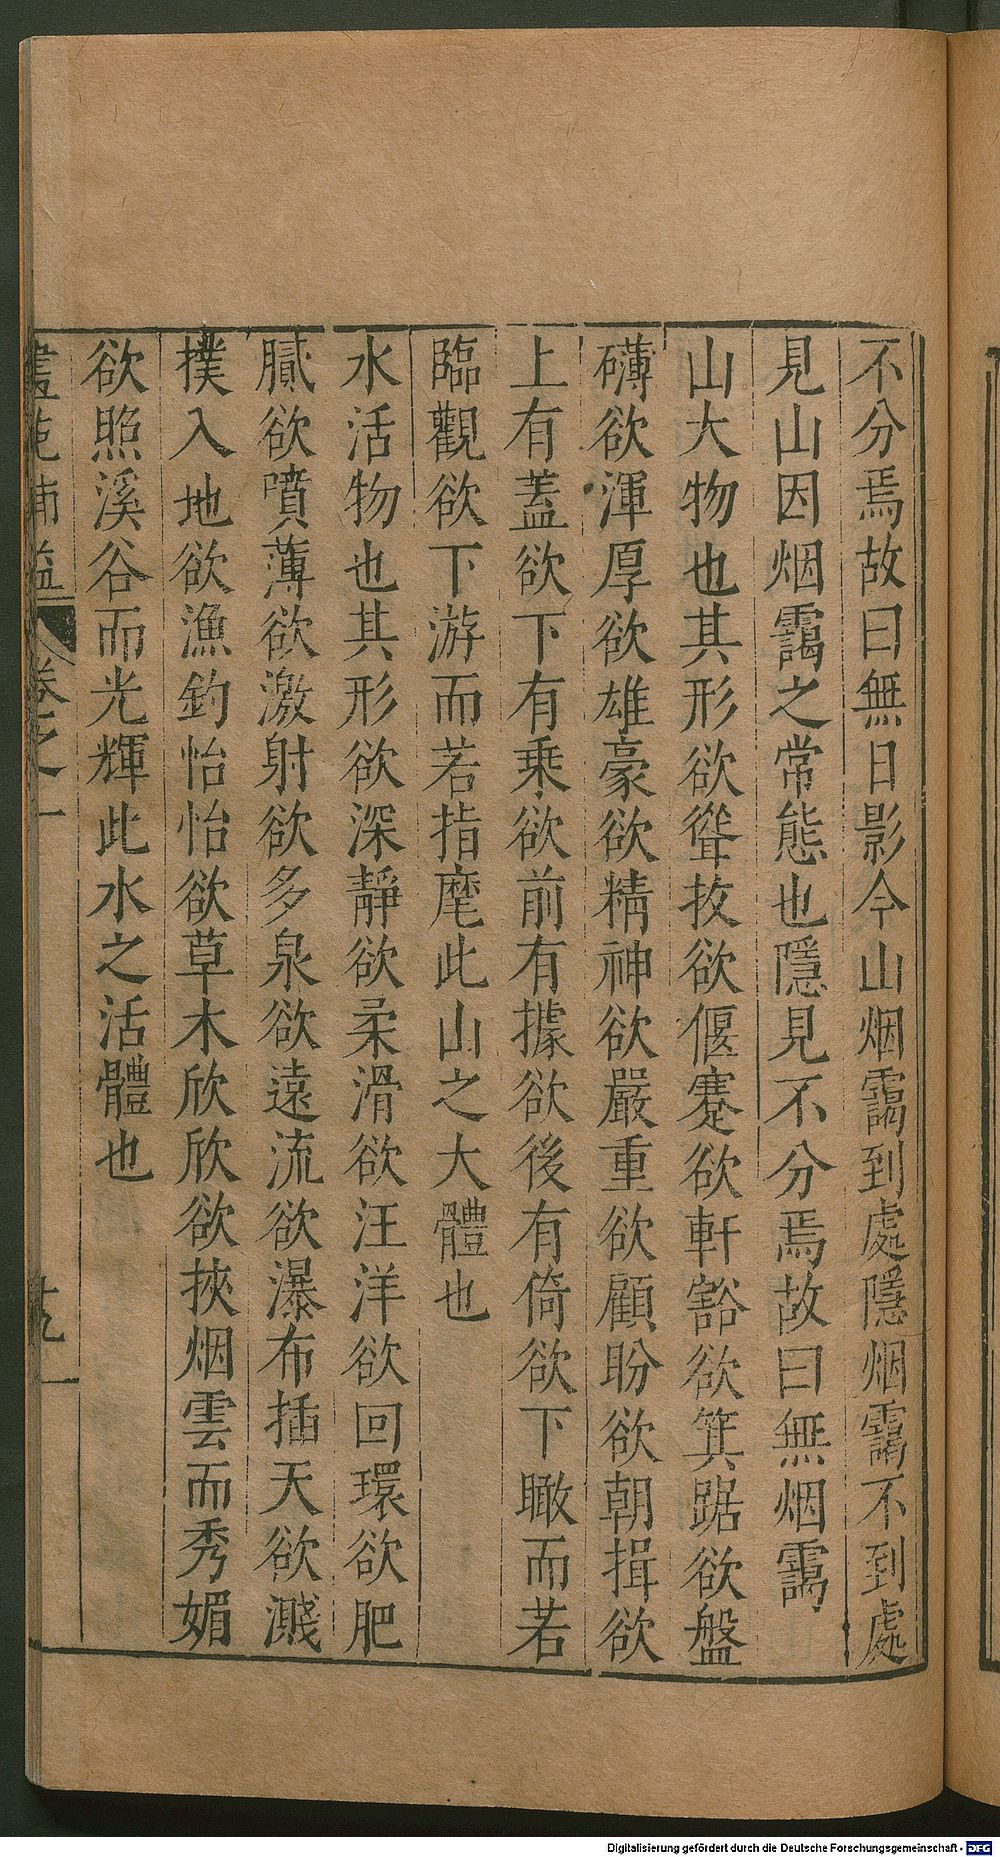 不分焉故曰無日影今山烟靄到處隱烟靄不到處
見山因烟靄之常態也隱見不分焉故曰無烟靄
山大物也其形欲聳拔欲偃蹇欲軒豁欲箕踞欲盤
礴欲渾厚欲雄豪欲精神欲嚴重欲顧盼欲朝揖欲
上有蓋欲下有乗欲前有據欲後有倚欲下瞰而若
臨觀欲下游而若指麾此山之大體也
水活物也其形欲深靜欲柔滑欲汪洋欲回環欲肥
膩欲噴薄欲激射欲多泉欲遠流欲瀑布插天欲濺
撲入地欲漁釣怡怡欲草木欣欣欲挾烟雲而秀媚
欲照溪谷而光輝此水之活體也
畫苑補益 卷之一 廿九
Digitalisierung gefördert durch die Deutsche Forschungsgemeinschaft - DFG